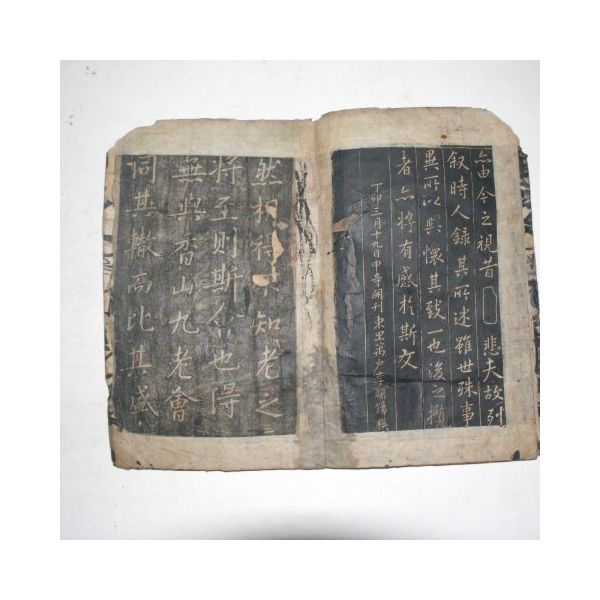 亦由今之視昔 悲夫故列
叙時人錄其所述雖世殊事
異所以興懷其致一也後之攬
者亦將有感於斯文
丁卯三月十九日中 開刊東里萬戶李
然相得 知老之
將至則斯會也得
無與香山九老會
同其轍而比其盛